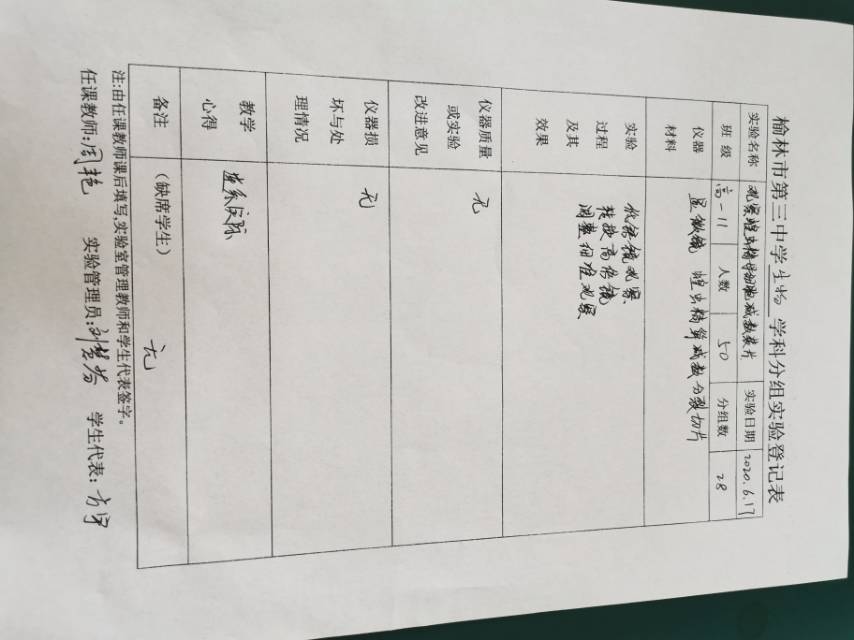 榆林市第三中学生物学科分组实验登记表
实验名称 观察蝗虫精母细胞减数装片 实验日期 2020.6.17
班级 高一11 人数 50 分组数 28
仪器材料 显微镜 蝗虫精巢减数分裂切片
实验
过程
及其
效果
低倍镜观察、
转换高倍镜
调整细准观察
仪器质量
或实验
改进意见
无
仪器损
坏与处
理情况
无
教学
心得
备注
(缺席学生) 无
注:由任课教师课后填写,实验室管理教师和学生代表签字。
任课教师:周艳 实验管理员: 学生代表: